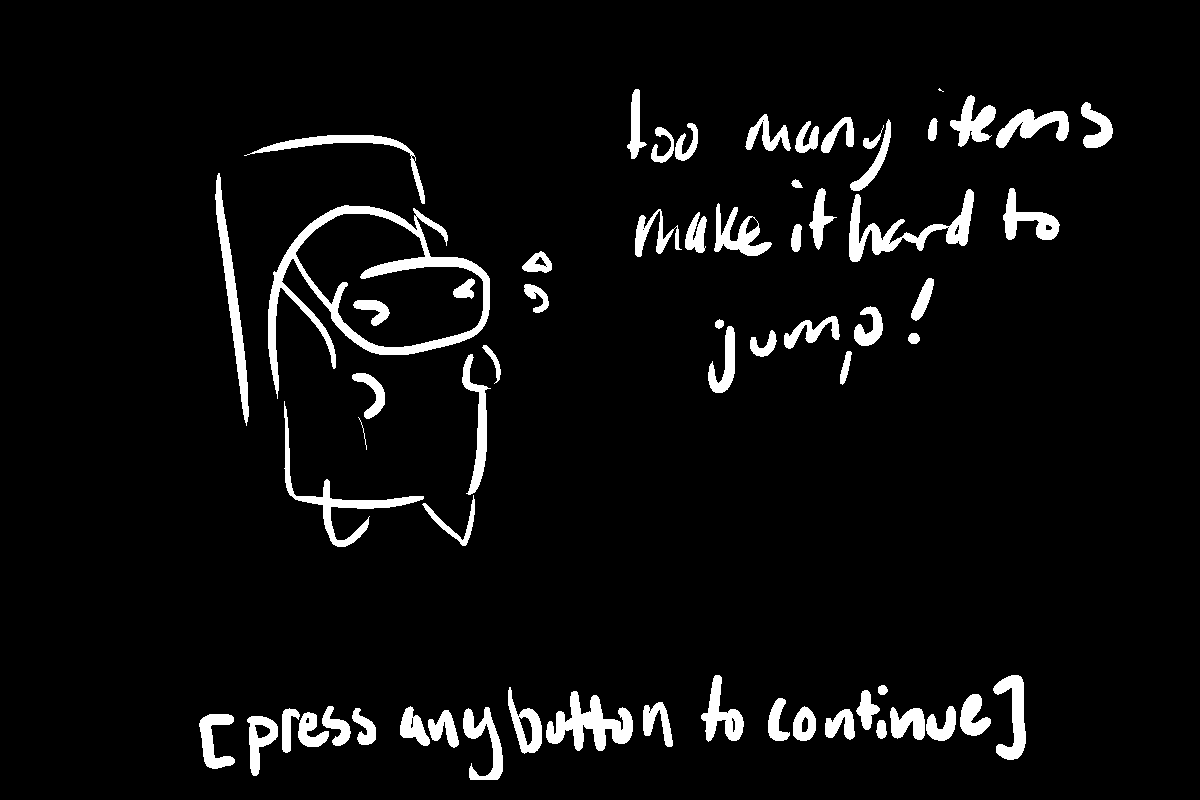 too many items
make it hard to
jump!
[press any button to continue]